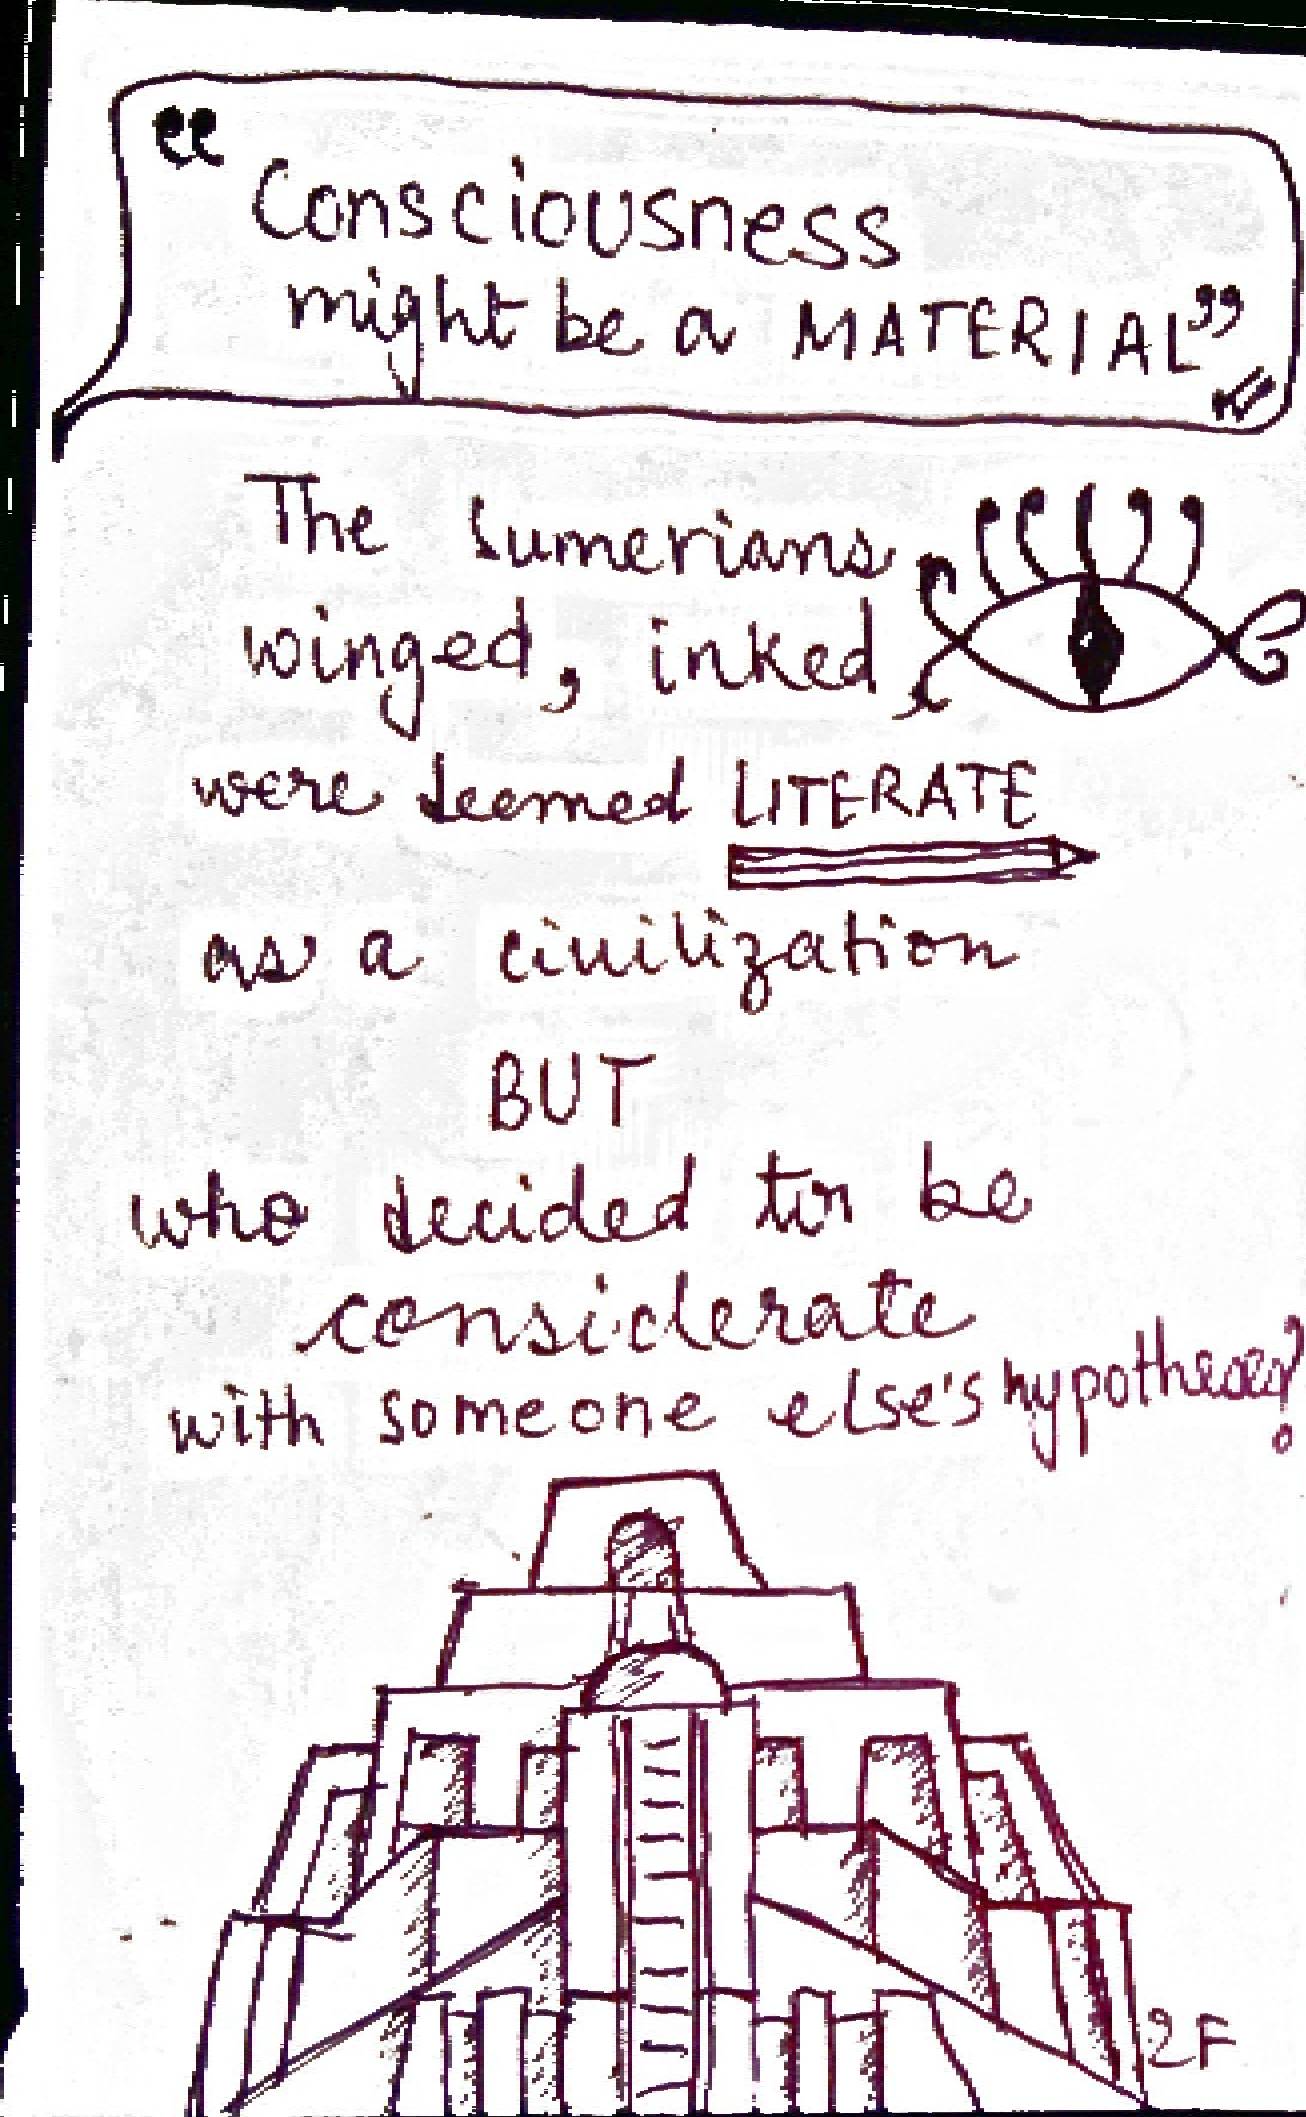 “Consciousness
might be a MATERIAL”
The Sumerians
winged, inked
were deemed LITERATE
as a civilization
BUT
who decided to be
considerate
with someone else's hypotheses?
2F